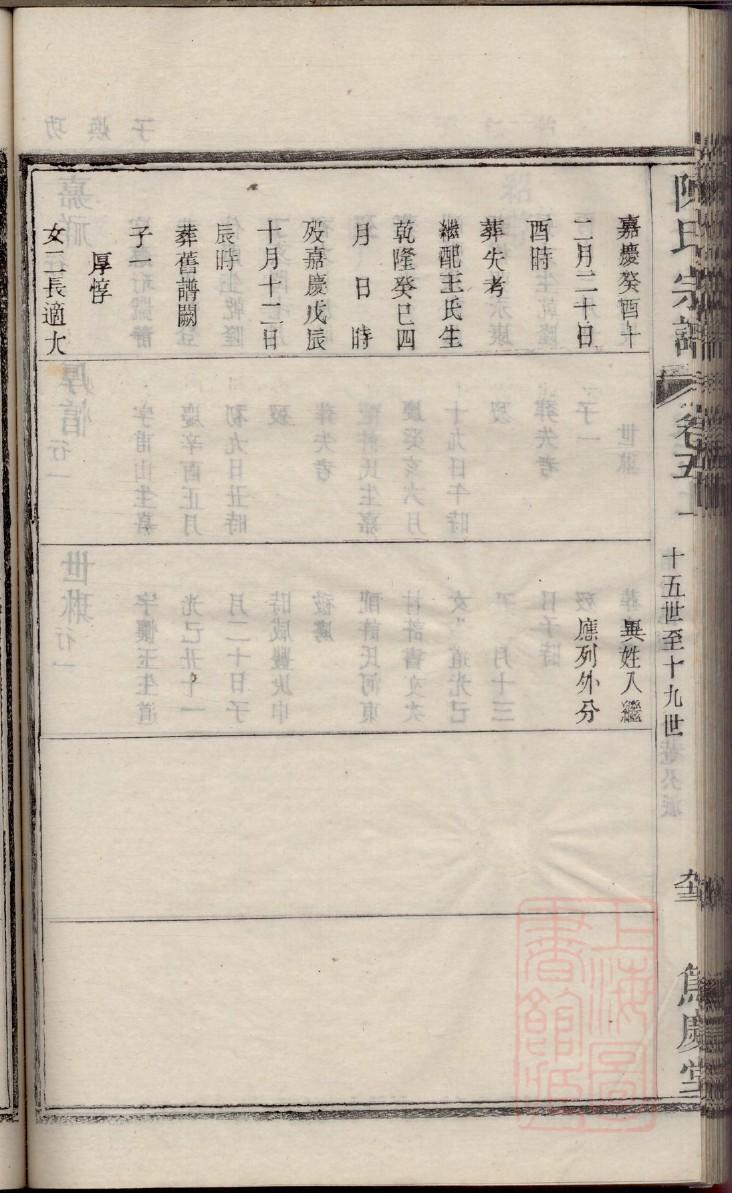 陳氏宗譜
卷五十
十五世至十九世
慶堂
嘉慶癸酉十
二月二十日
酉時
葬失考
繼配王氏生
乾隆癸巳四
月 日 時
歿嘉慶戊辰
十月十二日
辰時
葬舊譜闕
子一
厚惇
女二長適大
異姓入繼
應列外分
上海圖
書館藏